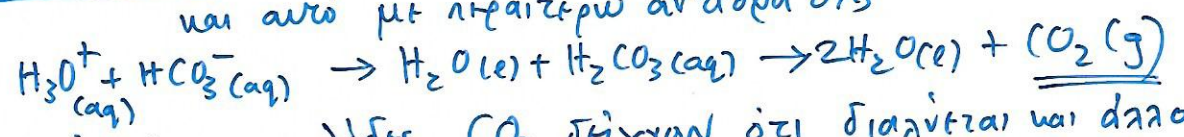 και αυτό με περαιτέρω αντίδραση
H₃O⁺(aq) + HCO₃⁻(aq) → H₂O(l) + H₂CO₃(aq) → 2H₂O(l) + CO₂(g)
CO₂ ότι διαλύεται και άλλο